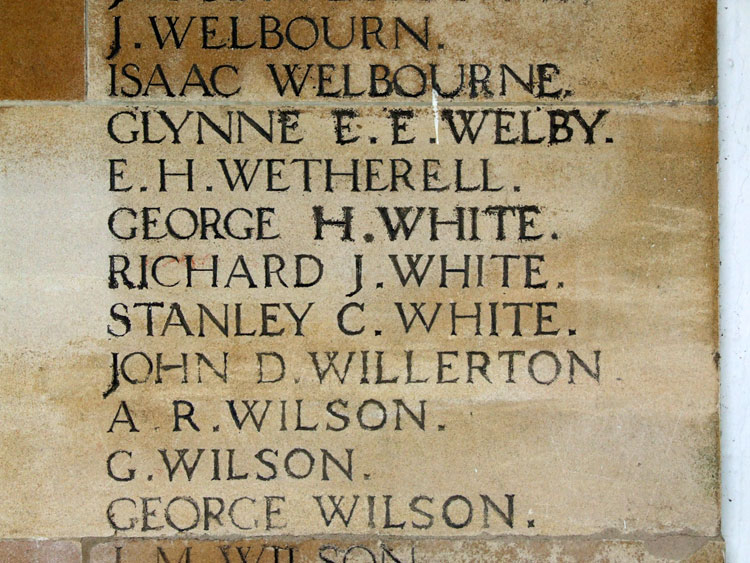 J. WELBOURN.
ISAAC WELBOURNE.
GLYNNE E. E. WELBY.
E. H. WETHERELL.
GEORGE H. WHITE.
RICHARD J. WHITE.
STANLEY C. WHITE.
JOHN D. WILLERTON
A R. WILSON.
G. WILSON.
GEORGE WILSON.
J. M. WILSON